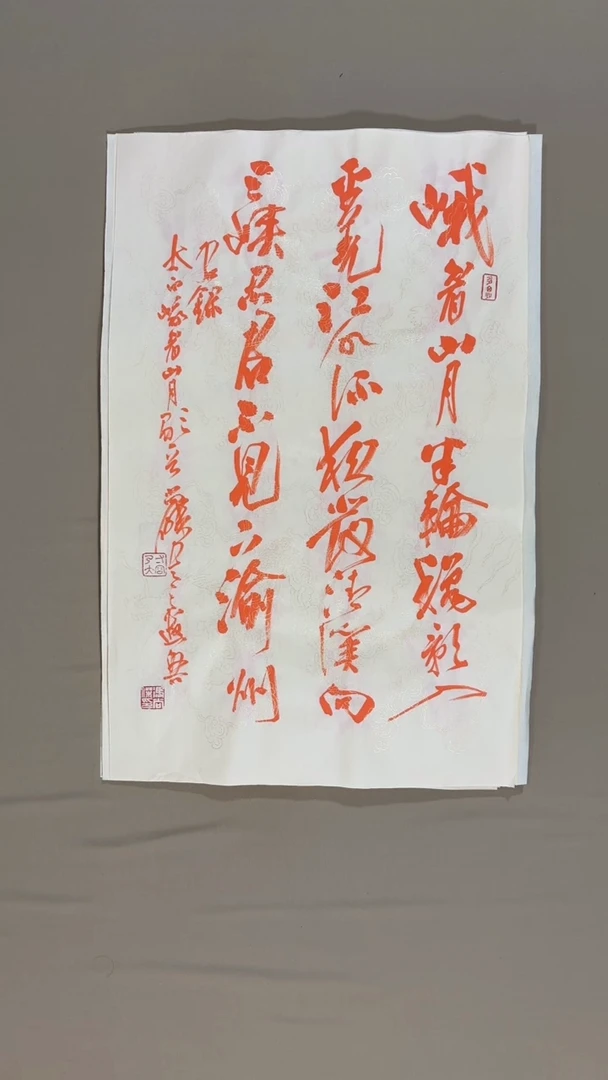 峨眉山月半輪秋影入
平羌江水流夜發清溪向
三峽思君不見下渝州
右錄
太白峨眉山月歌一首